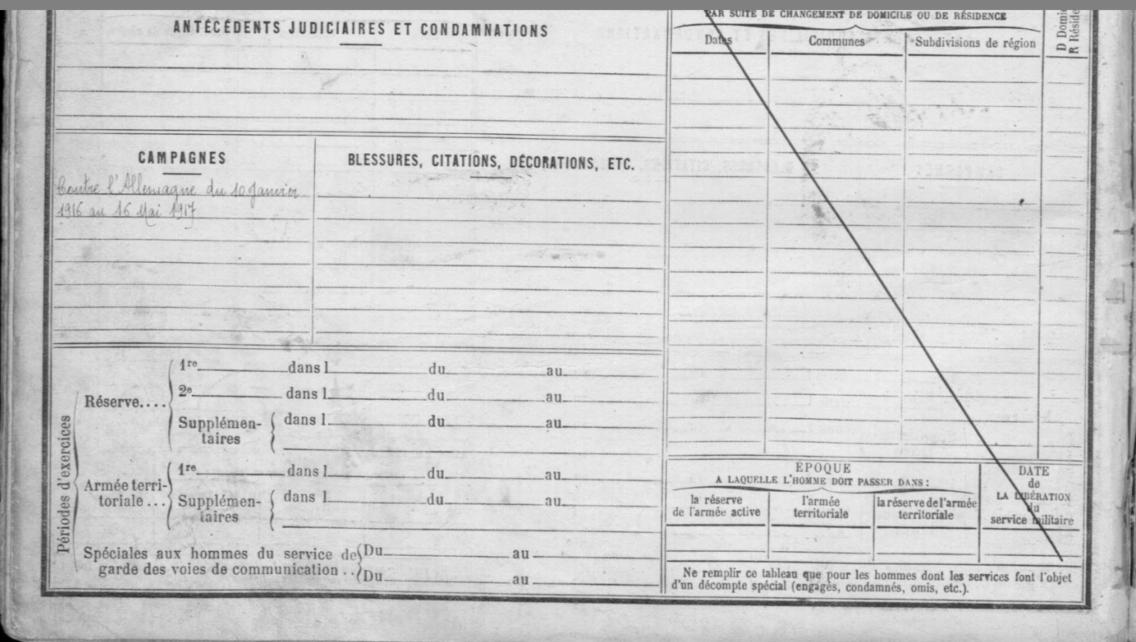 ANTÉCÉDENTS JUDICIAIRES ET CONDAMNATIONS
CAMPAGNES
Contre l'Allemagne du 10 Janvier
1916 au 16 Mai 1917
BLESSURES, CITATIONS, DÉCORATIONS, ETC.
Périodes d'exercices
Réserve....
1re dans l du au
2e dans l du au
Supplémen-
taires
dans l du au
Armée terri-
toriale ...
1re dans l du au
Supplémen-
taires
dans l du au
Spéciales aux hommes du service de
garde des voies de communication ..
Du au
Du au
PAR SUITE DE CHANGEMENT DE DOMICILE OU DE RÉSIDENCE
Dates
Communes
Subdivisions de région
D Domici
R Réside
ÉPOQUE
A LAQUELLE L'HOMME DOIT PASSER DANS :
la réserve
de l'armée active
l'armée
territoriale
la réserve de l'armée
territoriale
DATE
de
LA LIBÉRATION
du
service militaire
Ne remplir ce tableau que pour les hommes dont les services font l'objet
d'un décompte spécial (engagés, condamnés, omis, etc.).